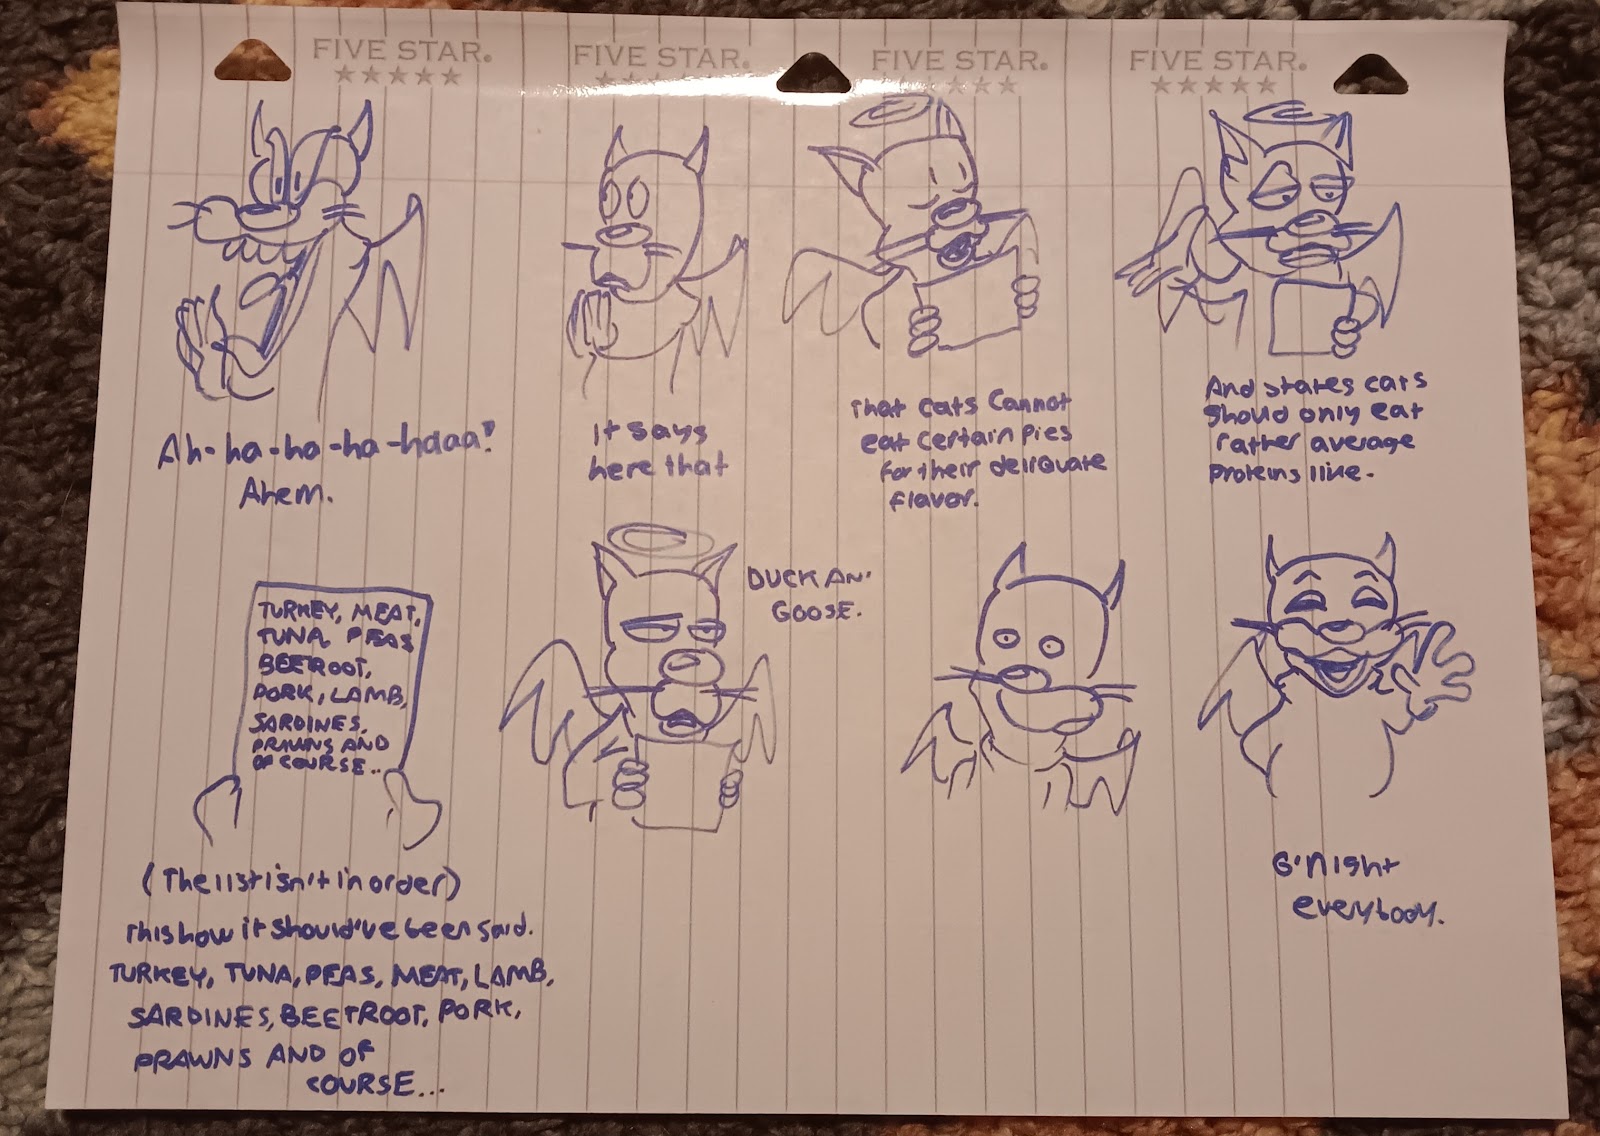 FIVE STAR.
FIVE STAR.
FIVE STAR.
FIVE STAR.
Ah-ha-ha-ha-haaa!
Ahem.
It says
here that
That cats cannot
eat certain pies
for their deliquate
flavor.
And states cats
should only eat
rather average
proteins like.
TURKEY, MEAT,
TUNA PEAS
BEETROOT,
PORK, LAMB,
SARDINES,
PRAWNS AND
OF COURSE..
DUCK AN'
GOOSE.
(The list isn't in order)
This how it should've been said.
TURKEY, TUNA, PEAS, MEAT, LAMB,
SARDINES, BEETROOT, PORK,
PRAWNS AND OF
COURSE...
G'Night
everybody.